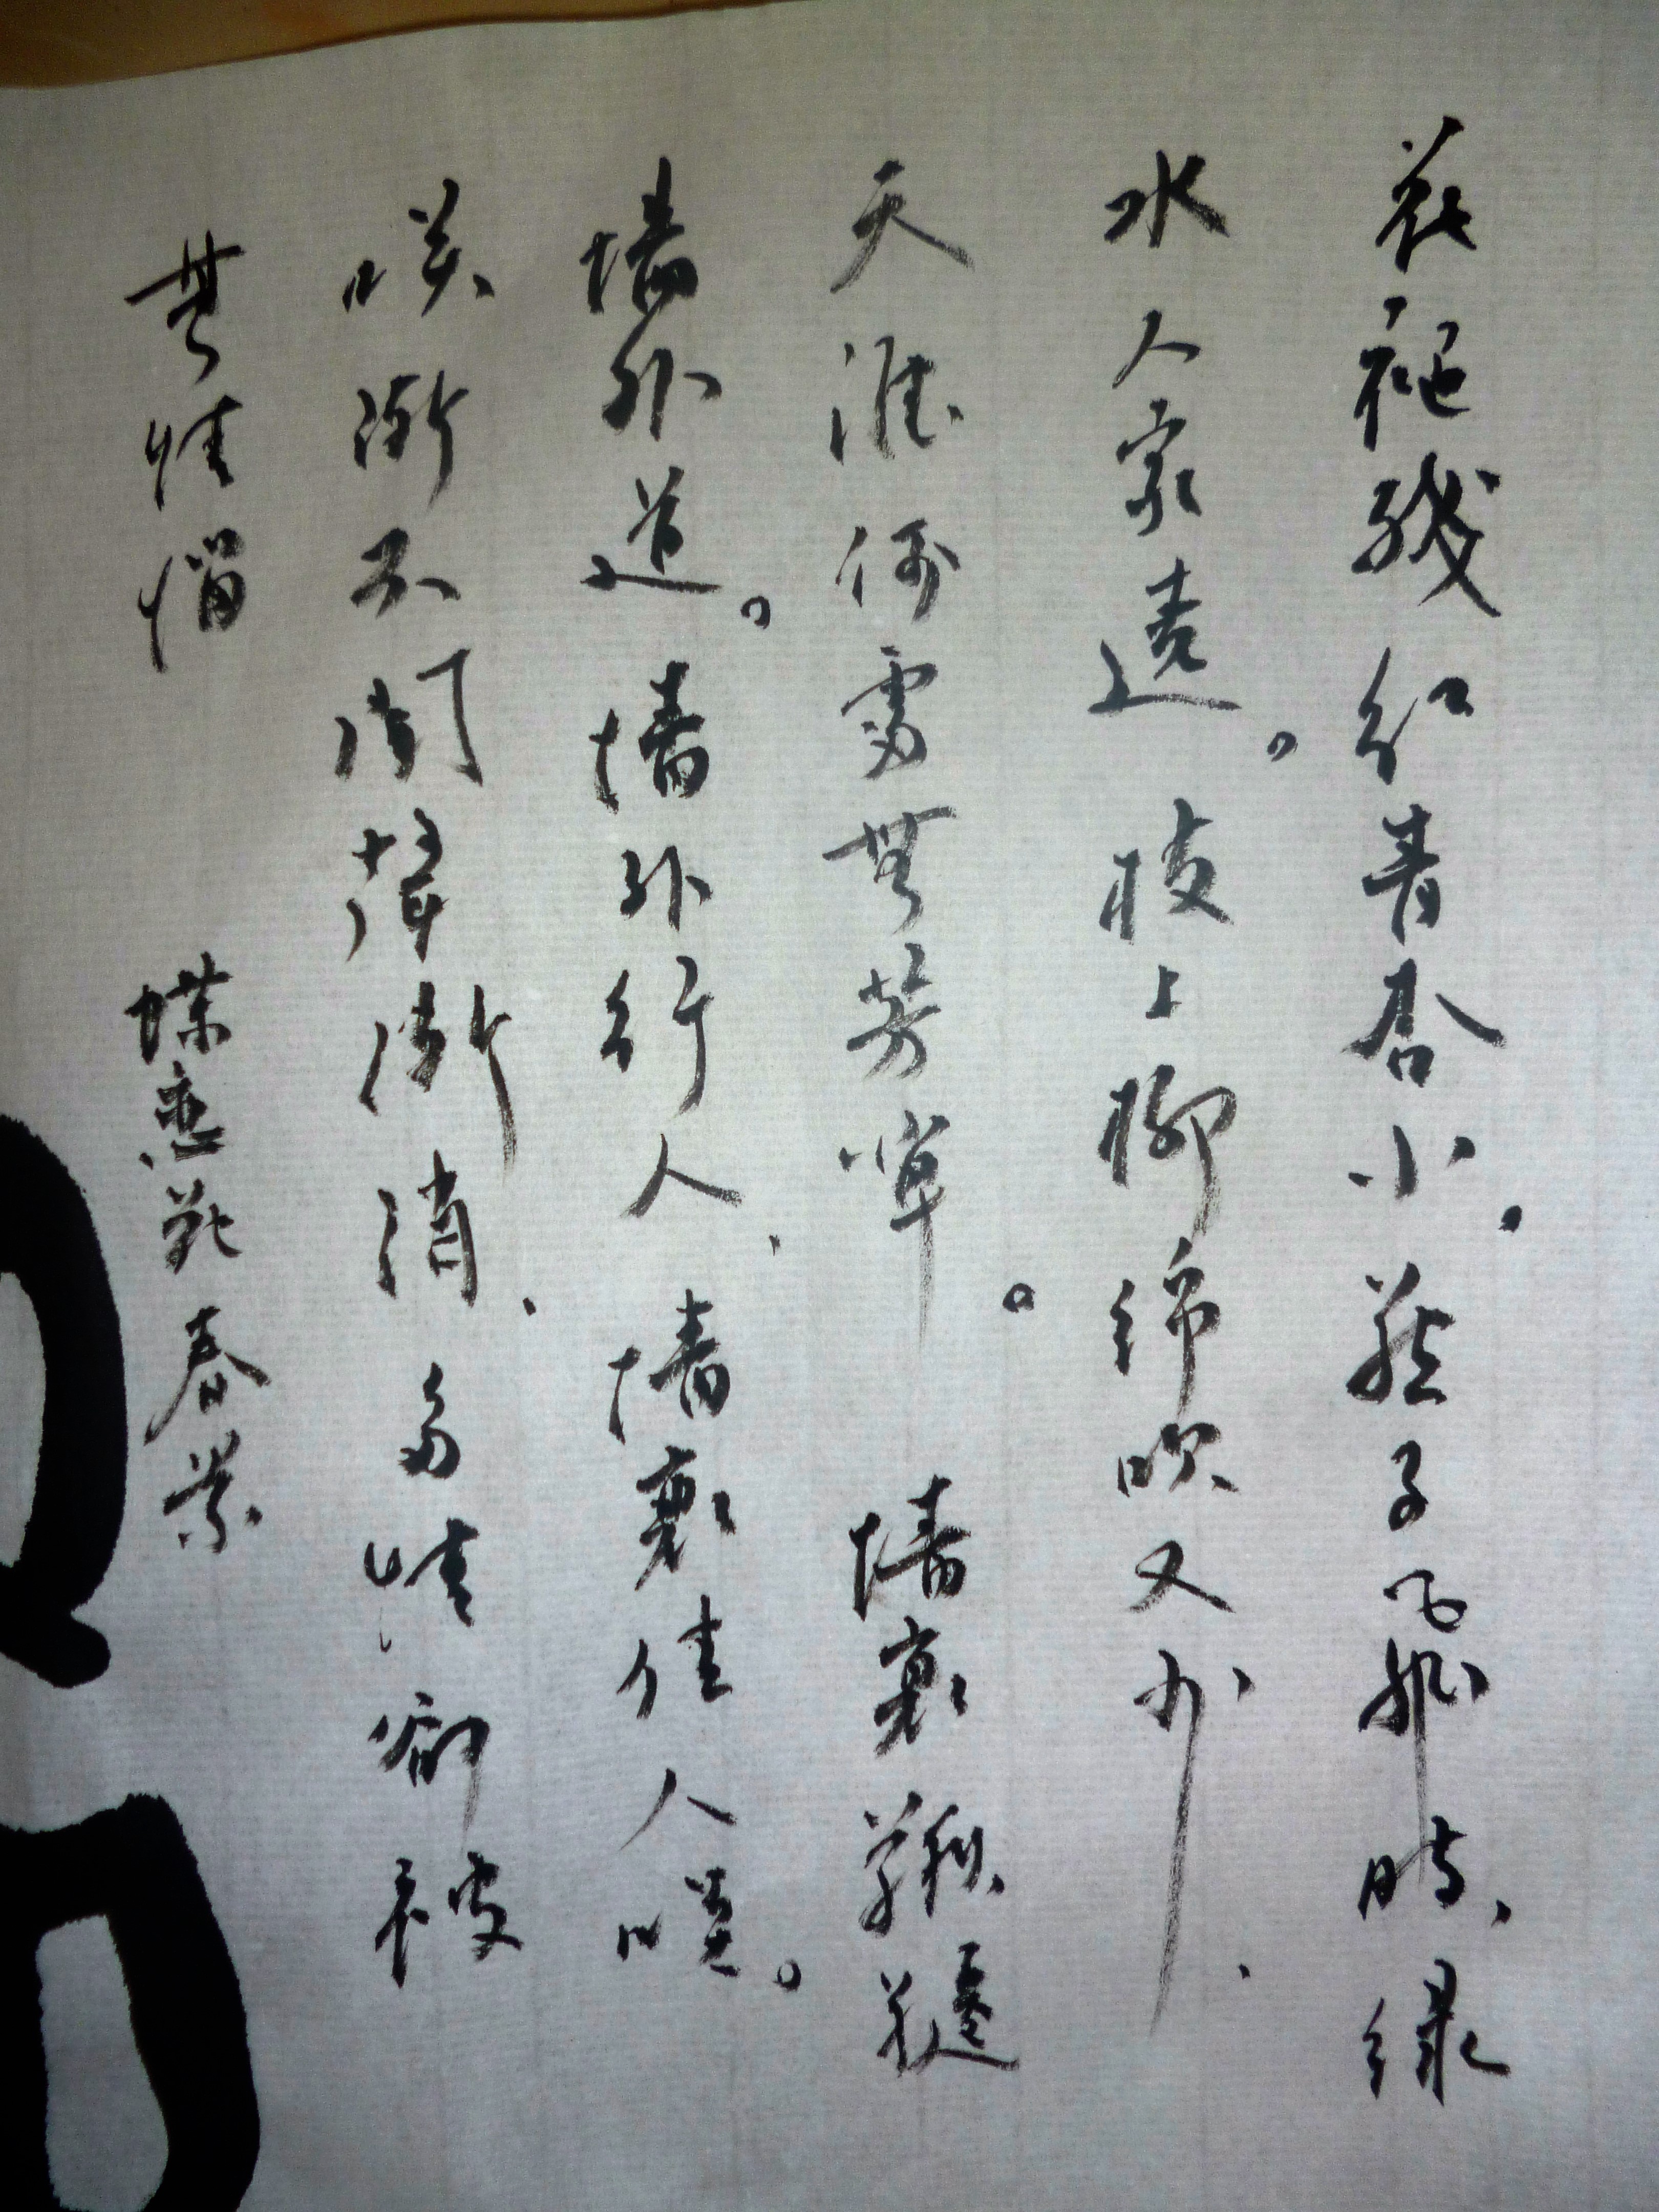 花褪殘紅青杏小。燕子飛時、綠
水人家遶。枝上柳綿吹又少、
天涯何處無芳草。墻裏鞦韆
墻外道。墻外行人、墻裏佳人咲。
咲漸不聞聲漸消、多情卻被
無情惱 蝶戀花 春景